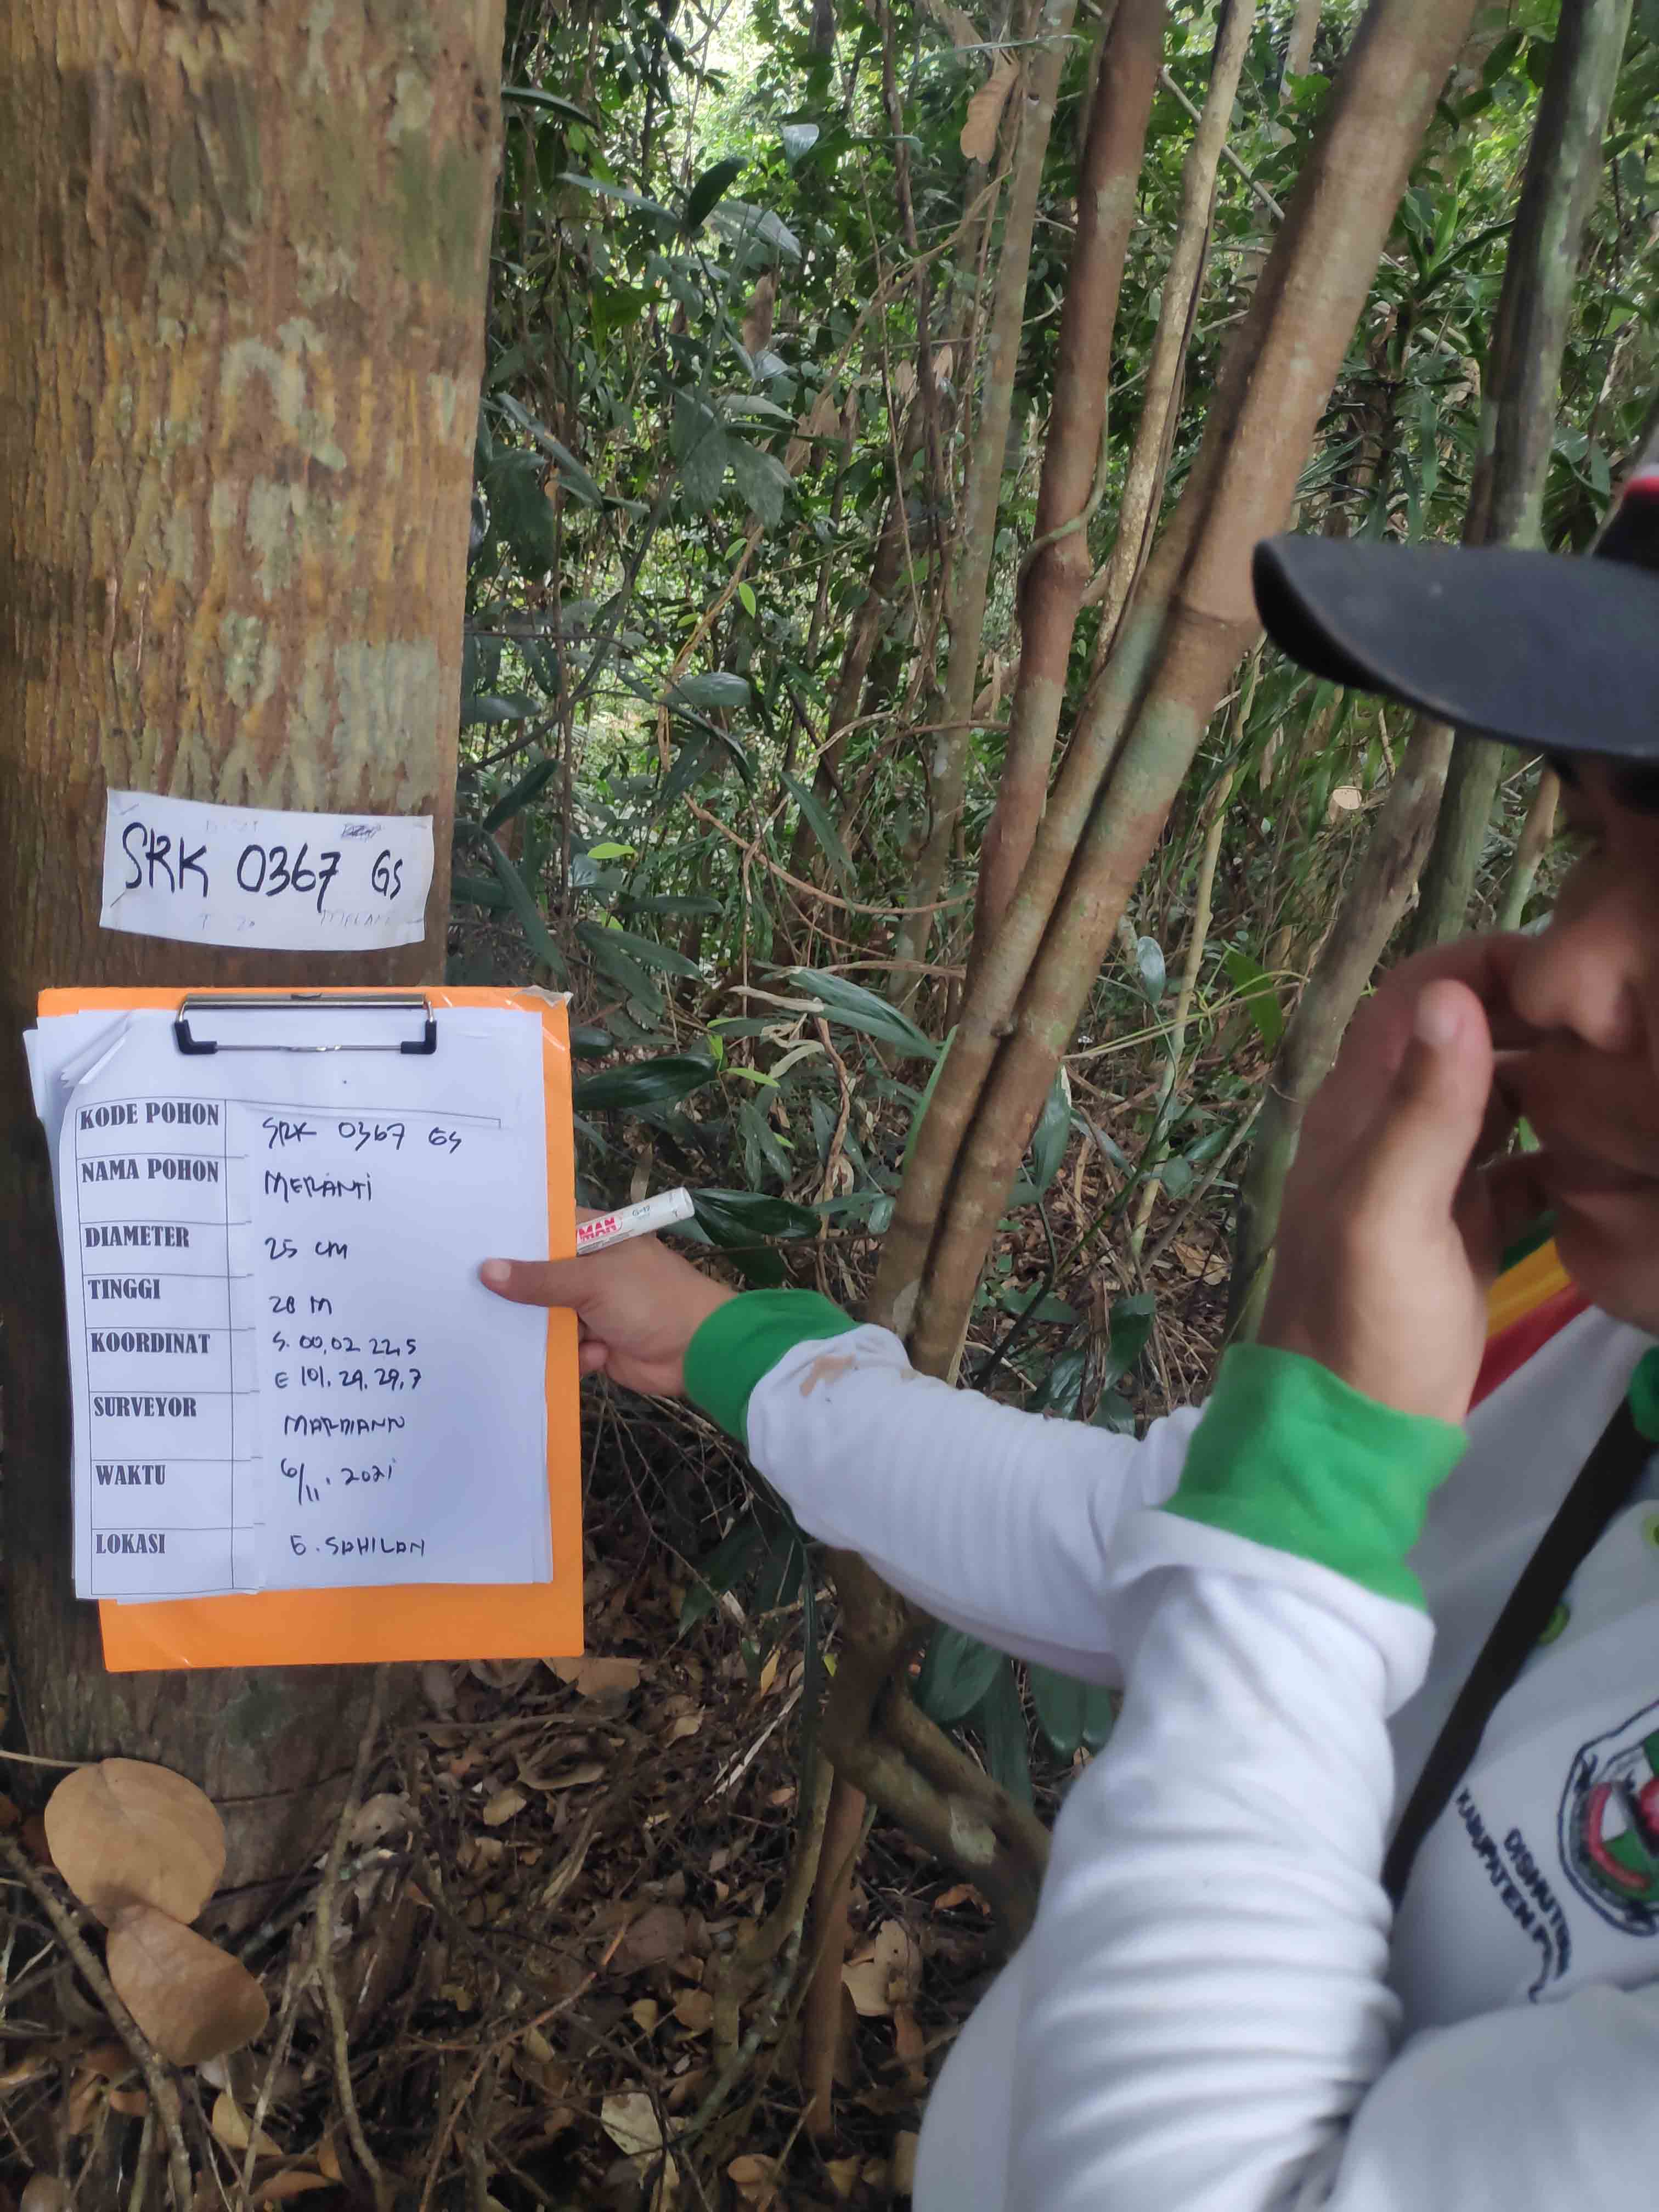 SRK 0367 GS
KODE POHON SRK 0367 GS
NAMA POHON MERANTI
DIAMETER 25 cm
TINGGI 28 M
KOORDINAT S. 00,02 22,5
E 101. 29. 29,7
SURVEYOR MARDIANN
WAKTU 6/11. 2021
LOKASI G. SAHILAN
MAN
KABUPATEN